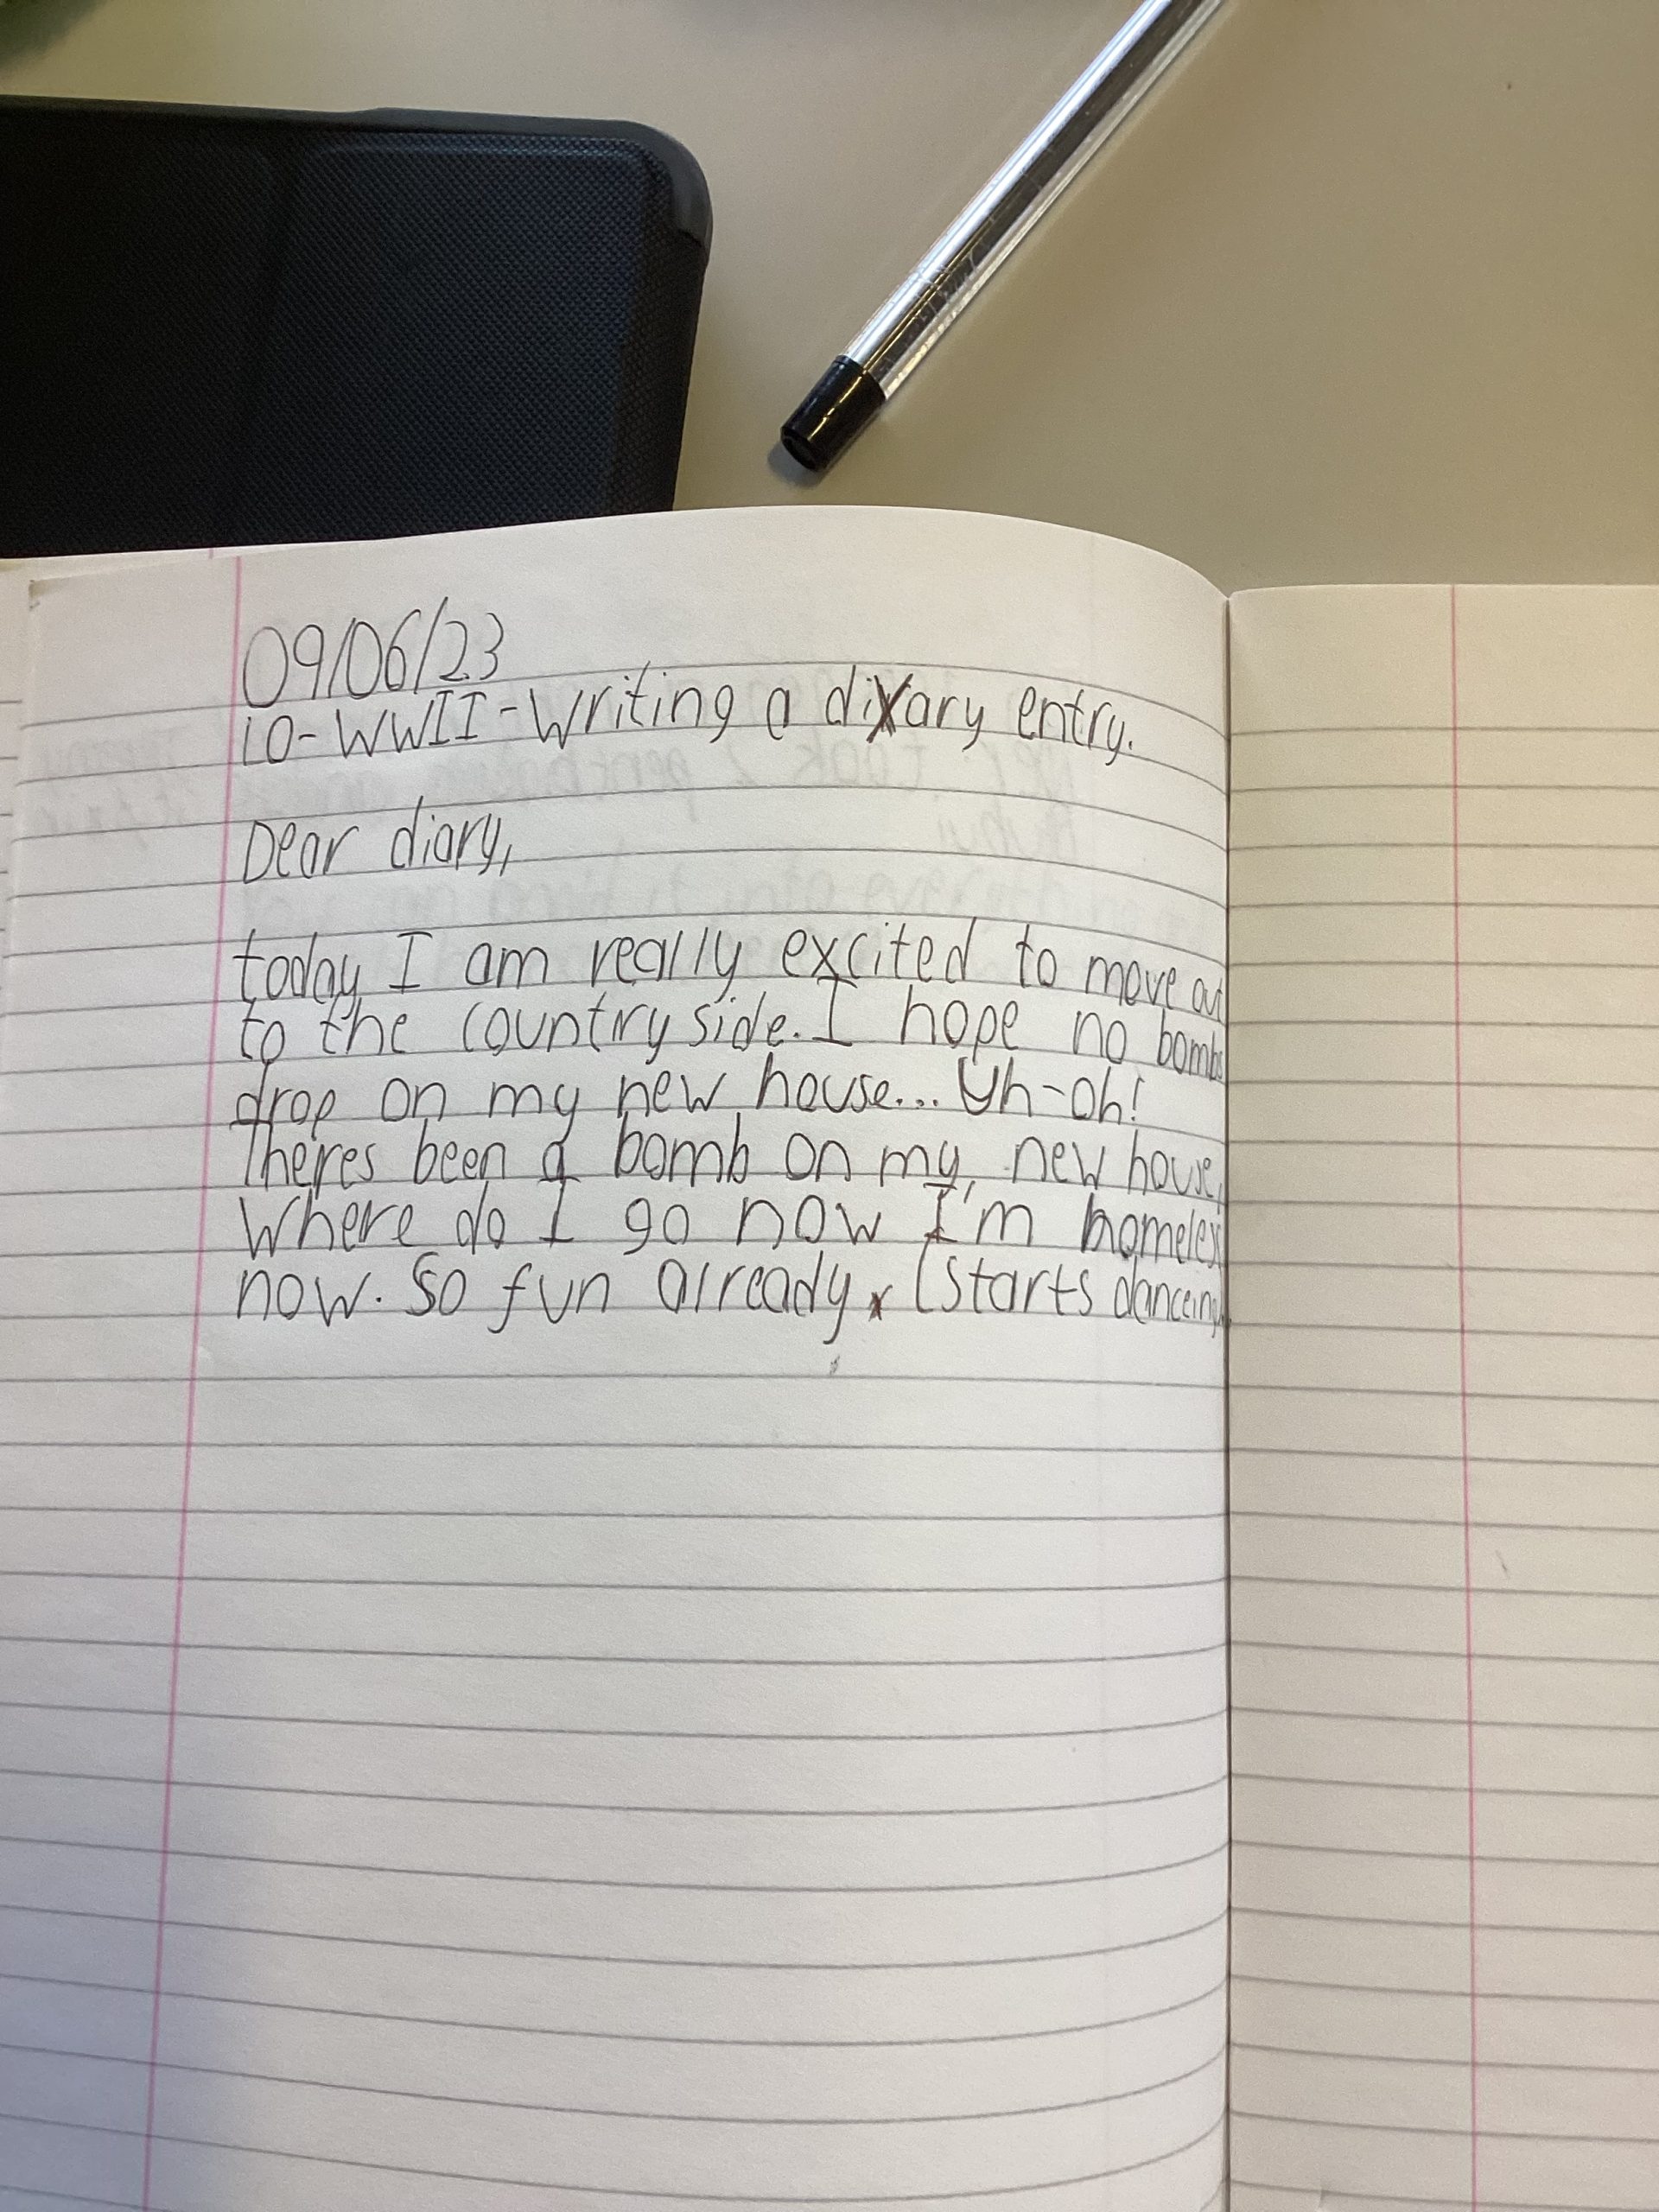 09/06/23
LO-WWII-Writing a diary entry.
Dear diary,
today I am really excited to move out
to the countryside. I hope no bombs
drop on my new house... Uh-oh!
Theres been a bomb on my new house,
Where do I go now I'm homeless
now. So fun already. (starts danceing)